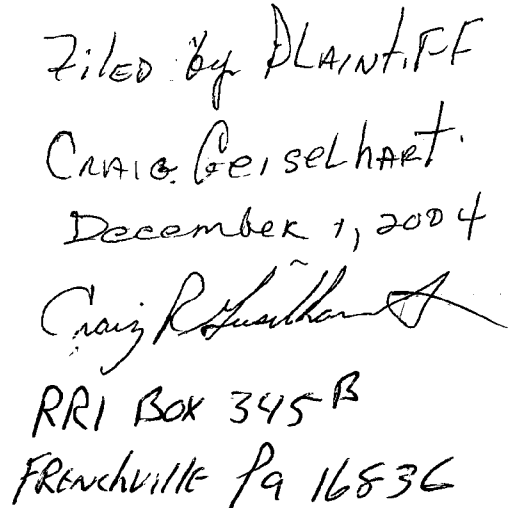 Filed by Plaintiff
Craig Geiselhart
December 1, 2004
Craig R Geiselhart
RR1 Box 345B
Frenchville Pa 16836